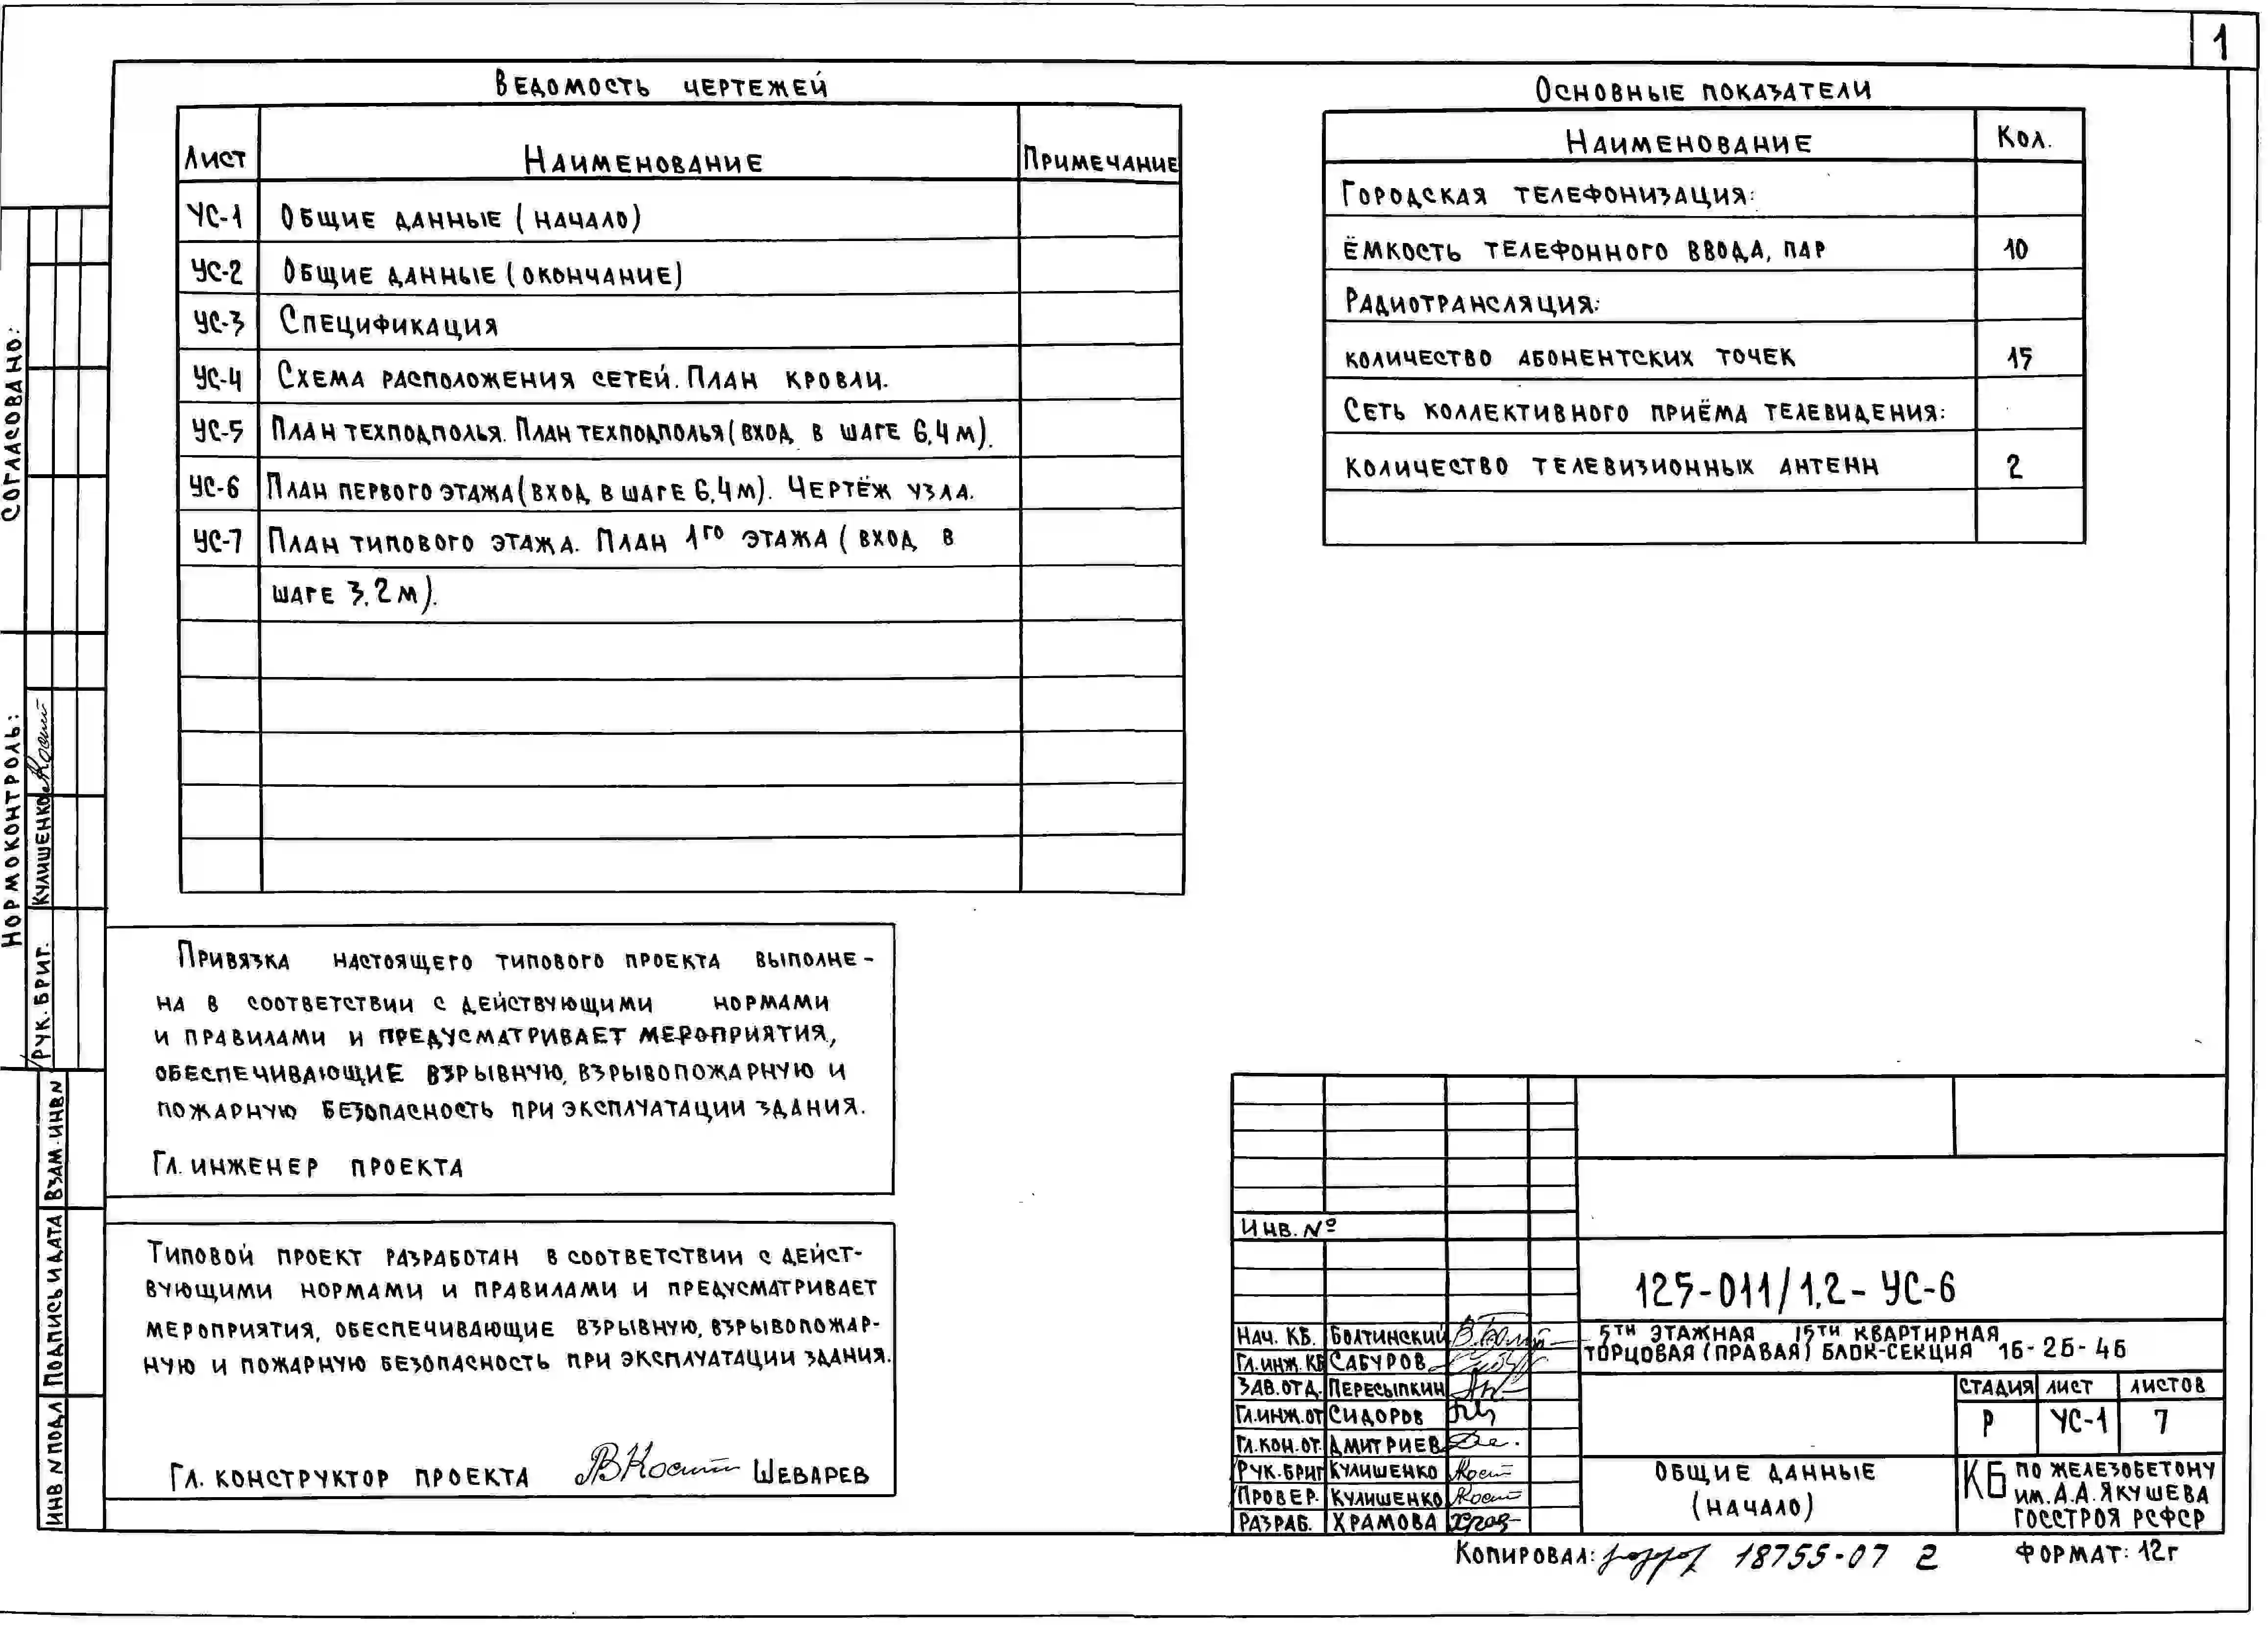 1
Ведомость чертежей
Лист Наименование Примечание
УС-1 Общие данные (начало)
УС-2 Общие данные (окончание)
УС-3 Спецификация
УС-4 Схема расположения сетей. План кровли.
УС-5 План техподполья. План техподполья (вход в шаге 6,4 м).
УС-6 План первого этажа (вход в шаге 6,4 м). Чертёж узла.
УС-7 План типового этажа. План 1го этажа (вход в
шаге 3,2 м).
Основные показатели
Наименование Кол.
Городская телефонизация:
Ёмкость телефонного ввода, пар 10
Радиотрансляция:
количество абонентских точек 15
Сеть коллективного приёма телевидения:
количество телевизионных антенн 2
Согласовано:
Нормоконтроль:
Рук. бриг. Кулишенко
Взам. инв N
Подпись и дата
Инв N подл
Привязка настоящего типового проекта выполне-
на в соответствии с действующими нормами
и правилами и предусматривает мероприятия,
обеспечивающие взрывную, взрывопожарную и
пожарную безопасность при эксплуатации здания.
Гл. инженер проекта
Типовой проект разработан в соответствии с дейст-
вующими нормами и правилами и предусматривает
мероприятия, обеспечивающие взрывную, взрывопожар-
ную и пожарную безопасность при эксплуатации здания.
Гл. конструктор проекта Шеварев
Инв. №
125-011/1.2-УС-6
Нач. КБ. Болтинский
Гл.инж.КБ Сабуров
Зав.отд. Пересыпкин
Гл.инж.от Сидоров
Гл.кон.от. Дмитриев
Рук.бриг Кулишенко
Провер. Кулишенко
Разраб. Храмова
5ти этажная 15ти квартирная
торцовая (правая) блок-секция 1Б-2Б-4Б
стадия лист листов
Р УС-1 7
Общие данные
(начало)
КБ по железобетону
им. А.А. Якушева
Госстроя РСФСР
Копировал: 18755-07 2 Формат: 12г